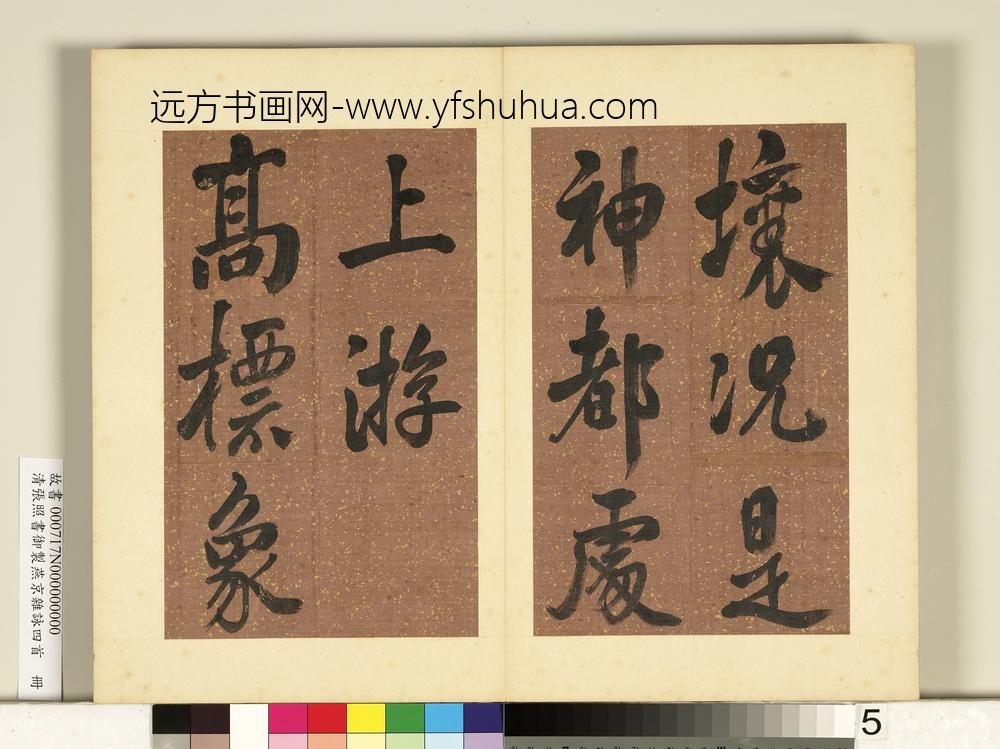 远方书画网-www.yfshuhua.com
壤况是
神都處
上游
髙標象
故書 000717N0000000000
清張照書御製燕京雜詠四首 冊
5